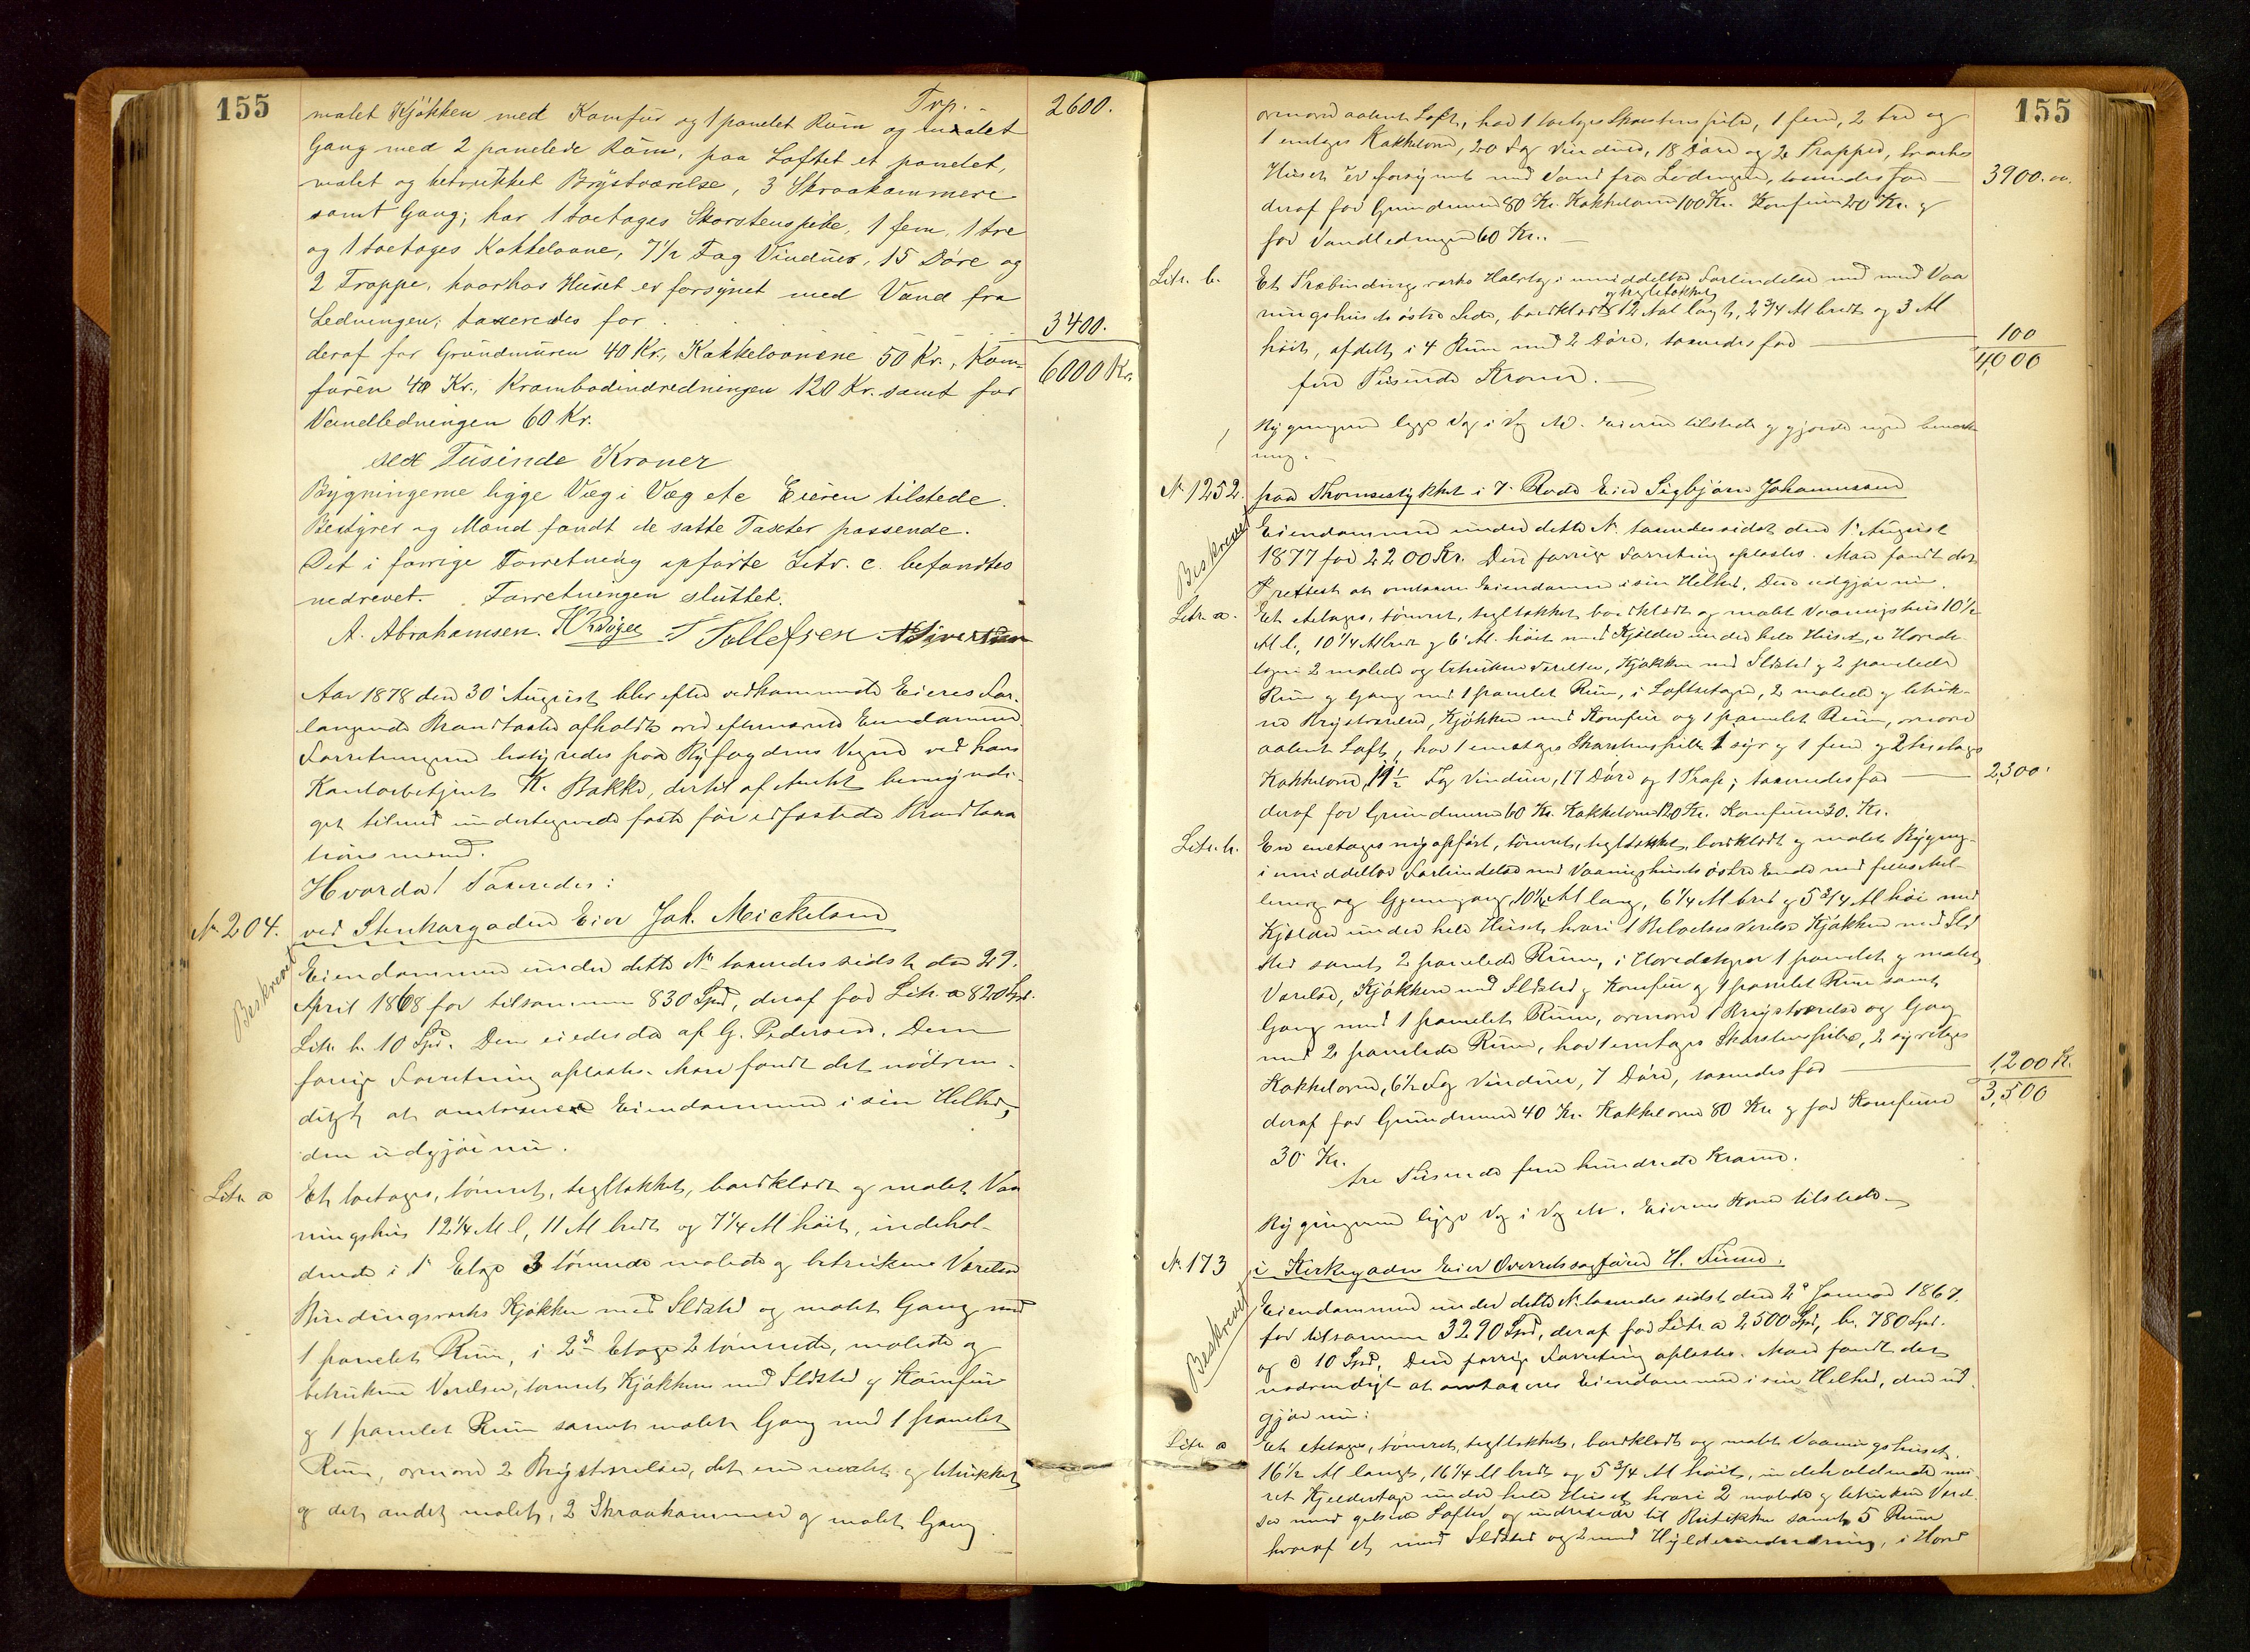 155
Trp. 2600.
malet Kjøkken med Komfur og 1 panelet Rum og malet
Gang med 2 panelede Rum, paa Loftet et panelet,
malet og betrukket Brystværelse, 3 Skraakammere
samt Gang; har 1 toetages Skorstenspibe, 1 fem, 1 tre
og 1 toetages Kakkelovne, 7 1/2 Fag Vinduer, 15 Døre og
2 Trappe, hvorhos Huset er forsynet med Vand fra
Ledningen; taxeredes for 3400.
deraf for Grundmuren 40 Kr., Kakkelovnene 50 Kr., Kom-
furen 40 Kr., Krambodindredningen 120 Kr. samt for 6000 Kr.
Vandledningen 60 Kr.
sex Tusinde Kroner
Bygningerne ligge Væg i Væg etc Eieren tilstede.
Bestyrer og Mænd fandt de satte Taxter passende.
Det i forrige Forretning opførte Litr. c. befandtes
nedrevet. Forretningen sluttet.
A. Abrahamsen. T Tollefsen
Aar 1878 den 30 August blev efter vedkommende Eieres For-
langende Brandtaxt afholdt over efternævnte Eiendomme
Forretningen bestyredes paa Byfogdens Vegne ved hans
Kontorbetjent K. Bakke, dertil af Amtet bemyndi-
get tilmed undertegnede faste før edfæstede Brandtaxa
tionsmænd.
Hvorda! Taxeredes:
N 204. ved Stenkargaden Eier Joh. Mickelsen
Beskrevet
Eiendommen under dette N taxeredes sidst den 29.
April 1868 for tilsammen 830 Spd, deraf for Litr. a 820 Spd.
Litr. b. 10 Spd. Den eiedes da af G. Pedersen. Den
forrige Forretning oplæstes. Man fandt det nødven-
digt at omtaxere Eiendommen i sin Helhed,
den udgjør nu.
Litr a Et toetages, tømret, tegltækket, bordklædt og malet Vaa
ningshus 12 1/4 Al l, 11 Al bredt og 7 1/4 Al høit, indehol-
dende i 1 Etage 3 tømrede malede og betrukne Værelser
Bindingsværks Kjøkken med Ildsted og malet Gang med
1 panelet Rum, i 2d Etage 2 tømrede, malede og
betrukne Værelser, tømret Kjøkken med Ildsted og Komfur
og 1 panelet Rum samt malet Gang med 1 panelet
Rum, ovenover 2 Brystværelser, det ene malet og betrukket
og det andet malet, 2 Skraakammere og malet Gang
155
ovenover aabent Loft, har 1 toetages Skorstenspibe, 1 fem, 2 tre og
1 entages Kakkelovne, 20 Fag Vinduer, 18 Døre og 2 Trapper, hvorhos
Huset er forsynet med Vand fra Ledningen, taxeredes for 3900.00.
deraf for Grundmuren 80 Kr. Kakkelovne 100 Kr. Komfuren 20 Kr. og
for Vandledningen 60 Kr.
Litr. b. Et Træbindingsværks Halvtag i umiddelbar Forbindelse med Vaa
og tegltækket
ningshusets østre Side, bordklædt 12 Al langt, 2 3/4 Al bredt og 3 Al
høit, afdelt i 4 Rum med 2 Døre, taxeredes for 100
4,000
fire Tusinde Kroner.
Bygningerne ligge Væg i Væg etc. Eieren tilstede og gjorde ingen bemærk
ning.
N 1252. paa Thomsestykket i 7 Rode Eier Sigbjørn Johannessen
Beskrevet
Eiendommen under dette N taxeredes sidst den 1 August
1877 for 2200 Kr. Den forrige Forretning oplæstes. Man fandt det
rettest at omtaxere Eiendommen i sin Helhed. Den udgjør nu.
Litr. a. Et etages, tømret, tegltækket bordklædt og malet Vaaningshus 10 1/2
Al l., 10 1/4 Al bredt og 6 Al. høit med Kjælder under hele Huset, i Hoved-
etagen 2 malede og betrukne Værelser, Kjøkken med Ildsted og 2 panelede
Rum og Gang med 1 panelet Rum, i Loftsetagen, 2 malede og betruk-
ne Brystværelser, Kjøkken med Komfur og 1 panelet Rum, ovenover
aabent Loft, har 1 enetages Skorstenspibe 1 syv og 1 fem og 2 treetages
Kakkelovne, 11 1/2 Fag Vinduer, 17 Døre og 1 Trap; taxeredes for 2,300.
deraf for Grundmuren 60 Kr. Kakkelovne 120 Kr. Komfuren 30. Kr.
Litr. b. En enetages nyopført, tømret, tegltækket, bordklædt og malet Bygning
i umiddelbar Forbindelse med Vaaningshusets østre Ende med
og Gjennemgang, 10 1/4 Al lang, 6 1/4 Al bred og 5 3/4 Al høi med
Kjælder under hele Huset hvori 1 Beboelsesværelse Kjøkken med Ild
sted samt 2 panelede Rum, i Hovedetagen 1 panelet og malet
Værelse, Kjøkken med Ildsted og Komfur og 1 panelet Rum samt
Gang med 1 panelet Rum, ovenover 1 Brystværelse og Gang
med 2 panelede Rum, har 1 enetages Skorstenspibe, 2 syvetages
Kakkelovne, 6 1/2 Fag Vinduer, 7 Døre, taxeredes for 1,200 K.
deraf for Grundmuren 40 Kr. Kakkelovne 80 Kr og for Komfuren 3,500
30 Kr.
tre Tusinde fem hundrede Kroner.
Bygningerne ligge Væg i Væg etc. Eierens Kone tilstede.
N. 173 i Kirkegaden Eier Overretssagfører H.
Beskrevet
Eiendommen under dette N. taxeredes sidst den 2 Januar 1867.
for tilsammen 3290 Spd, deraf for Litr. a 2500 Spd, b. 780 Spd.
og c 10 Spd. Den forrige Forretning oplæstes. Man fandt det
nødvendigt at omtaxeres Eiendommen i sin Helhed, den ud-
gjør nu:
Litr a Et etages, tømret, tegltækket, bordklædt og malet Vaaningshuset
16 1/2 Al langt, 16 1/4 Al bredt og 5 3/4 Al høit, indeholdende mu-
ret Kjelderetage under hele Huset hvori 2 malede og betrukne Værel-
ser med gipsede Lofter og indredede til Butikker samt 5 Rum
hvoraf et med Ildsted og 2 med Hyldeindredning, i Hoved